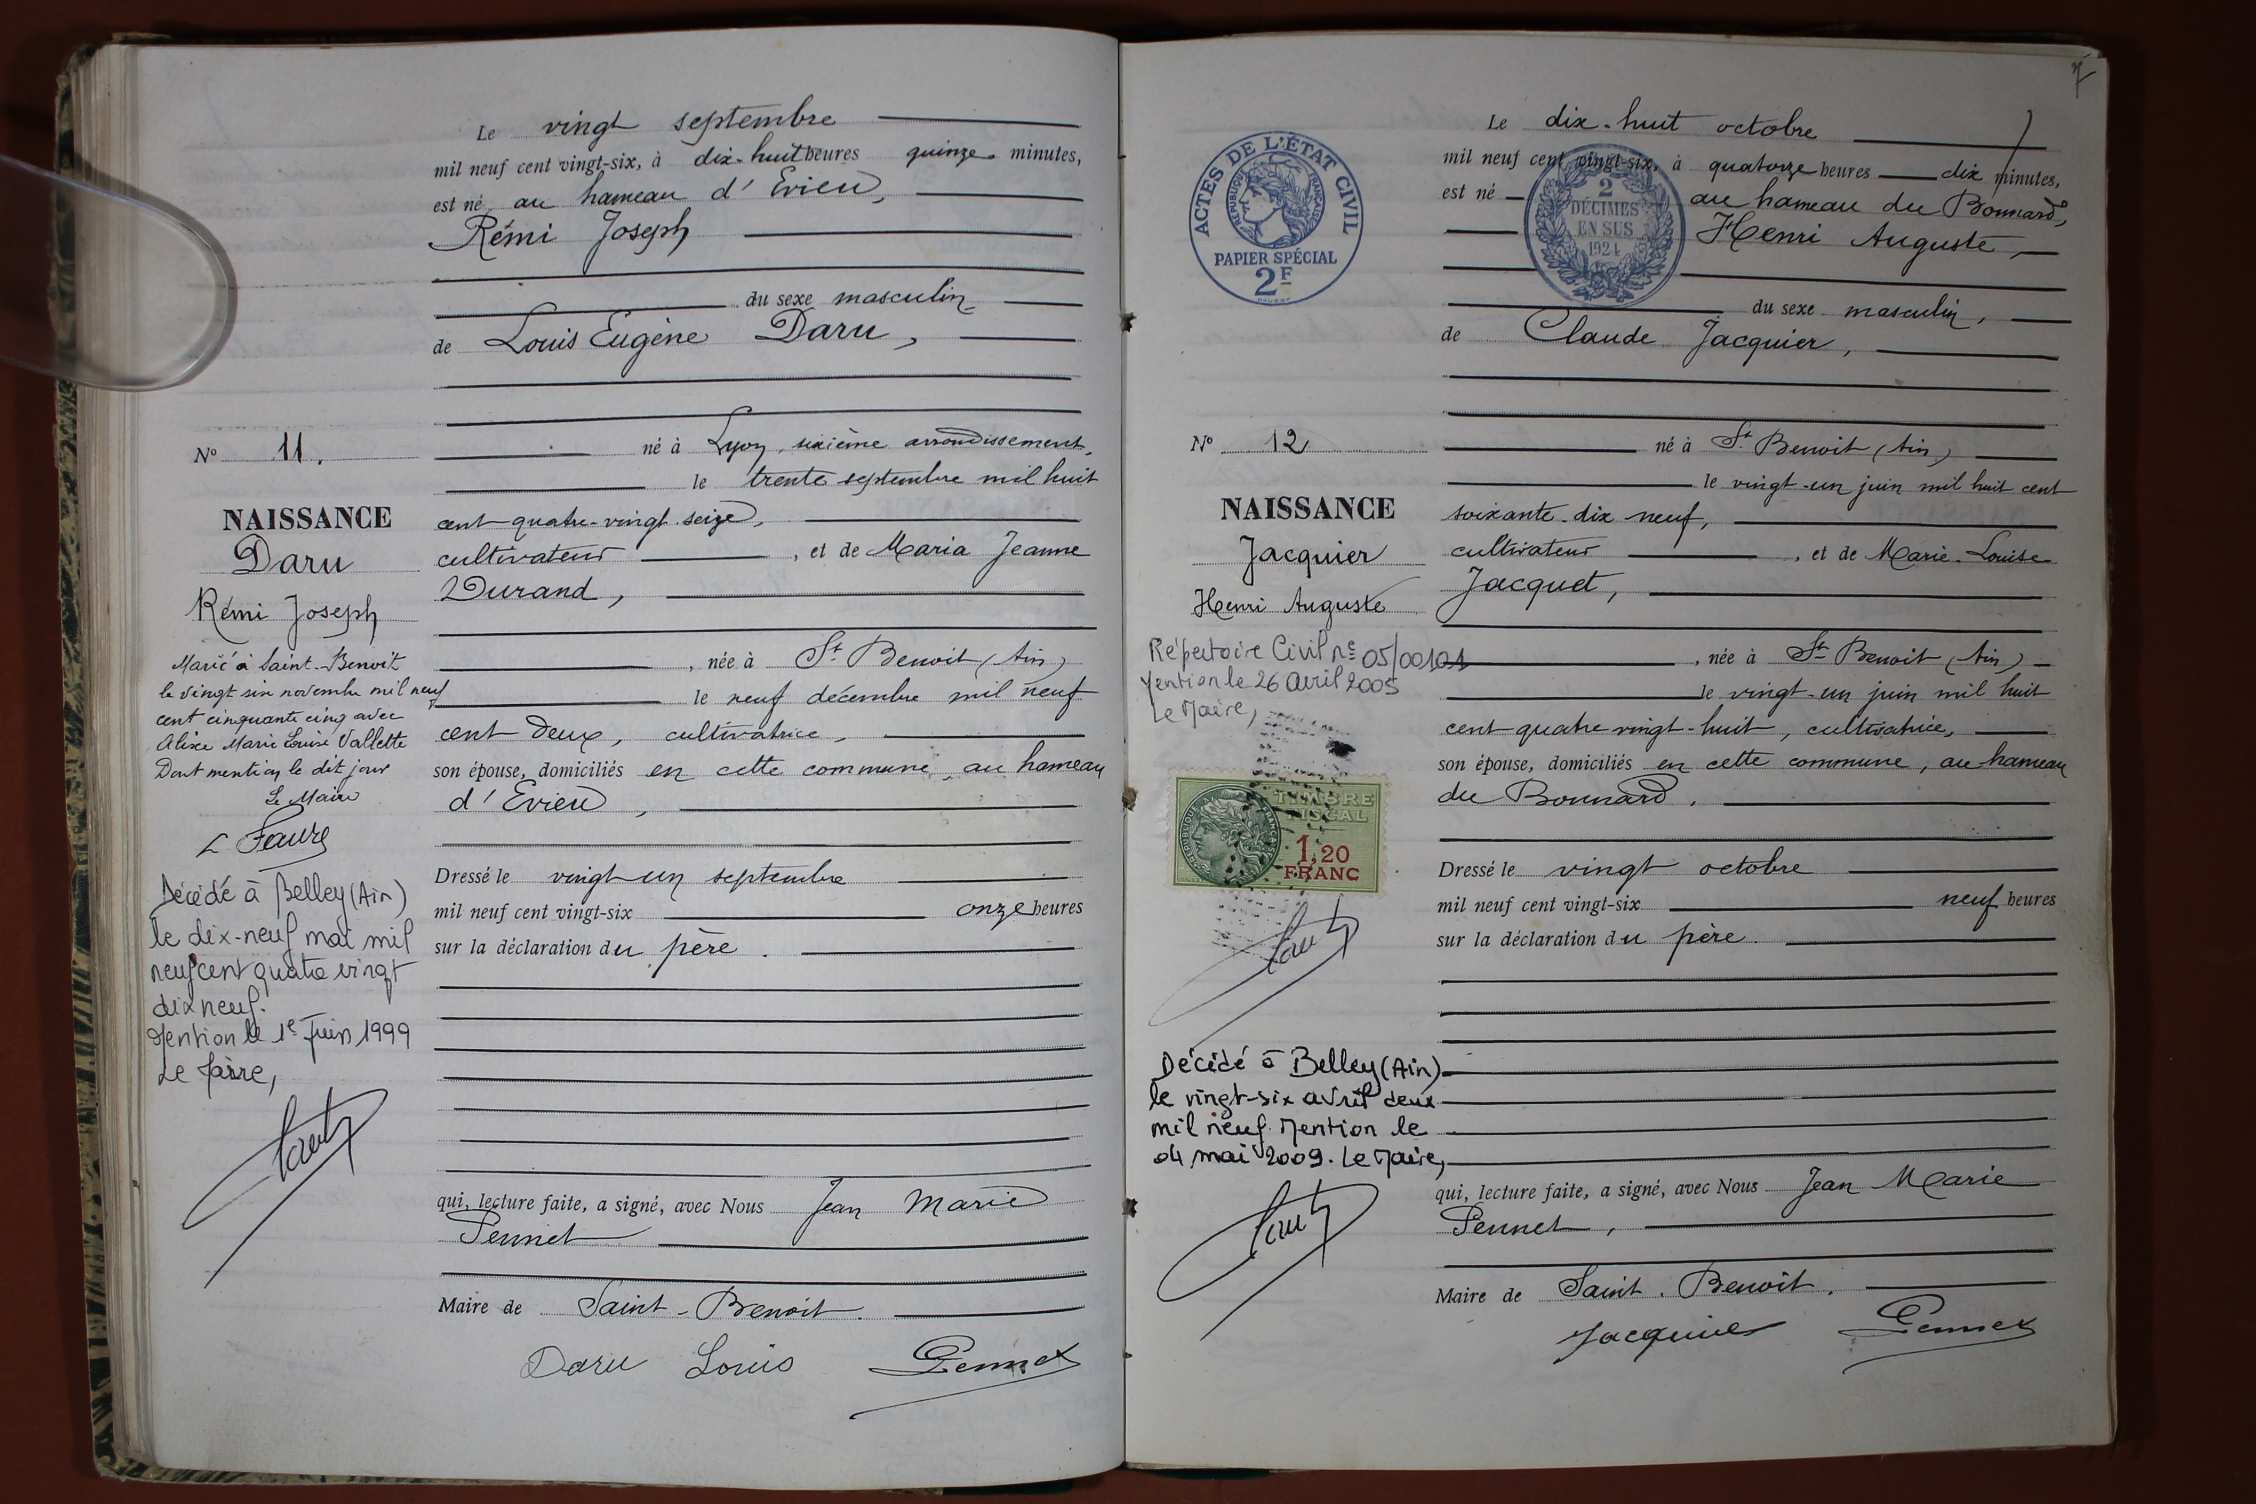 Le vingt septembre
mil neuf cent vingt-six, à dix-huit heures quinze minutes,
est né au hameau d'Evieu,
Rémi Joseph
du sexe masculin
de Louis Eugène Daru,
né à Lyon, sixième arrondissement,
le trente septembre mil huit
cent quatre-vingt-seize,
cultivateur, et de Maria Jeanne
Durand,
, née à St Benoit (Ain)
le neuf décembre mil neuf
cent deux, cultivatrice,
son épouse, domiciliés en cette commune, au hameau
d'Evieu,
Dressé le vingt-un septembre
mil neuf cent vingt-six onze heures
sur la déclaration du père.
qui, lecture faite, a signé, avec Nous Jean Marie
Pennet
Maire de Saint-Benoit.
Daru Louis Pennet
N° 11.
NAISSANCE
Daru
Rémi Joseph
Marié à Saint-Benoit
le vingt six novembre mil neuf
cent cinquante cinq avec
Alice Marie Louise Vallette
Dont mention le dit jour
Le Maire
L Faure
Décédé à Belley (Ain)
le dix-neuf mai mil
neuf cent quatre vingt
dix neuf.
Mention le 1e Juin 1999
Le Maire,
7
ACTES DE L'ÉTAT CIVIL
RÉPUBLIQUE FRANÇAISE
PAPIER SPÉCIAL
2F
2
DÉCIMES
EN SUS
1924
Le dix-huit octobre
mil neuf cent vingt-six, à quatorze heures dix minutes,
est né au hameau du Bonnard,
Henri Auguste,
du sexe masculin,
de Claude Jacquier,
né à St Benoit (Ain)
le vingt-un juin mil huit cent
soixante-dix neuf,
cultivateur, et de Marie-Louise
Jacquet,
, née à St Benoit (Ain)
le vingt-un juin mil huit
cent quatre vingt-huit, cultivatrice,
son épouse, domiciliés en cette commune, au hameau
du Bonnard.
Dressé le vingt octobre
mil neuf cent vingt-six neuf heures
sur la déclaration du père.
qui, lecture faite, a signé, avec Nous Jean Marie
Pennet,
Maire de Saint-Benoit.
Jacquier Pennet
N° 12
NAISSANCE
Jacquier
Henri Auguste
Répertoire Civil n° 05/00101
Mention le 26 Avril 2005
Le Maire,
TIMBRE
FISCAL
1,20
FRANC
Décédé à Belley (Ain)
le vingt-six avril deux
mil neuf. Mention le
04 mai 2009. Le Maire,